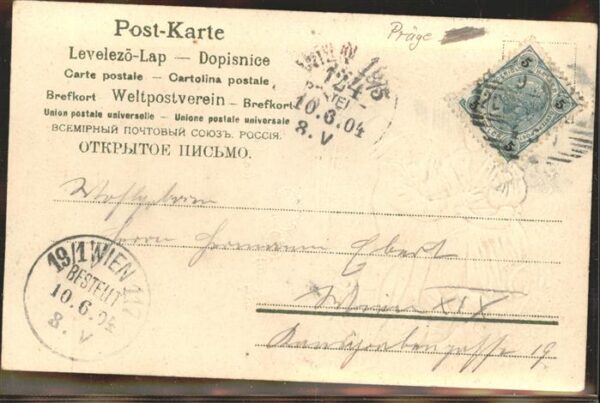 Post-Karte
Levelező-Lap — Dopisnice
Carte postale — Cartolina postale
Brefkort — Weltpostverein — Brefkort
Union postale universelle — Unione postale universale
ВСЕМІРНЫЙ ПОЧТОВЫЙ СОЮЗЪ. РОССІЯ.
ОТКРЫТОЕ ПИСЬМО.
Präge
124
BESTELLT
10.6.04
8.V
5
5
5
5
Wohlgeboren
Herrn Hermann Ebert
Wien XIX
19
19/1 WIEN 117
BESTELLT
10.6.04
8.V